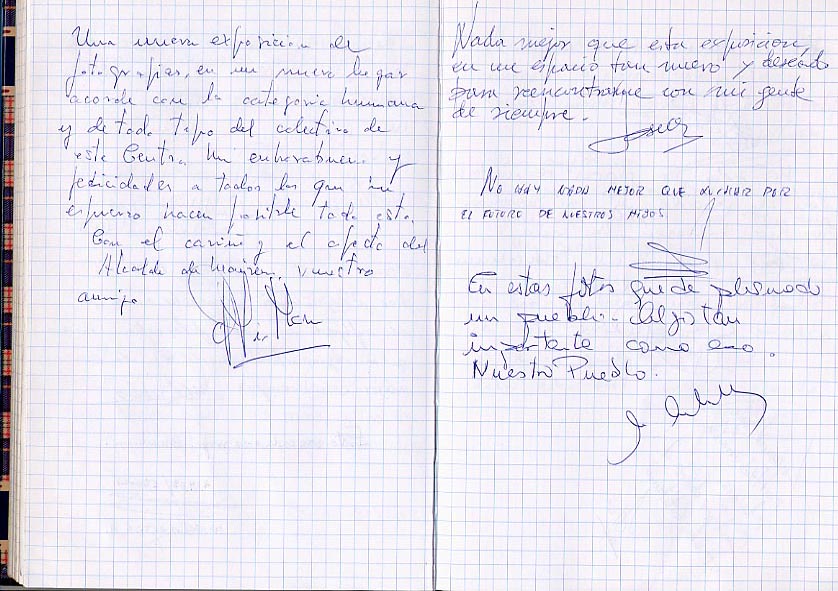 Una nueva exposición de
fotografias, en un nuevo lugar
acorde con la categoria humana
y de todo tipo del colectivo de
este Centro. Mi enhorabuena y
felicidades a todos los que
esfuerzo hacen posible todo esto.
Con el cariño y el afecto del
Alcalde de vuestro
amigo
Nada mejor que esta exposicion,
en un espacio tan nuevo y deseado
para reencontrarme con mi gente
de siempre.
NO HAY NADA MEJOR QUE LUCHAR POR
EL FUTURO DE NUESTROS HIJOS.
En estas fotos quede plasmado
un pueblo. Algo tan
importante como eso.
Nuestro Pueblo.